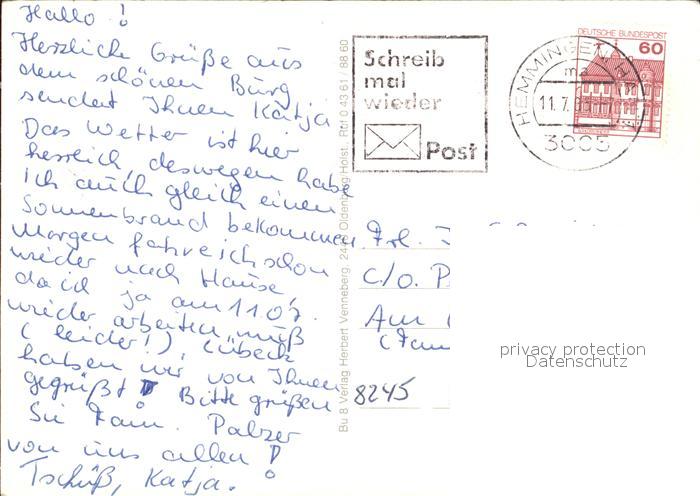 Hallo!
Herzliche Grüße aus
dem schönen Burg
sendet Ihnen Katja
Das Wetter ist hier
herrlich, deswegen habe
ich auch gleich einen
Sonnenbrand bekommen.
Morgen fahre ich schon
wieder nach Hause
da ich ja am 11.07.
wieder arbeiten muß
(leider!), Lübeck
haben wir von Ihnen
gegrüßt! Bitte grüßen
Sie Fam. Palzer
von uns allen!
Tschüß, Katja.
Bu 8 Verlag Herbert Venneberg, 2440 Oldenburg/Holst. Ruf 0 43 61 / 88 60
Schreib
mal
wieder
Post
HEMMINGEN, H
ma
11.7.
3005
DEUTSCHE BUNDESPOST
60
Frl.
c/o. P
Am
(Fam
8245
privacy protection
Datenschutz